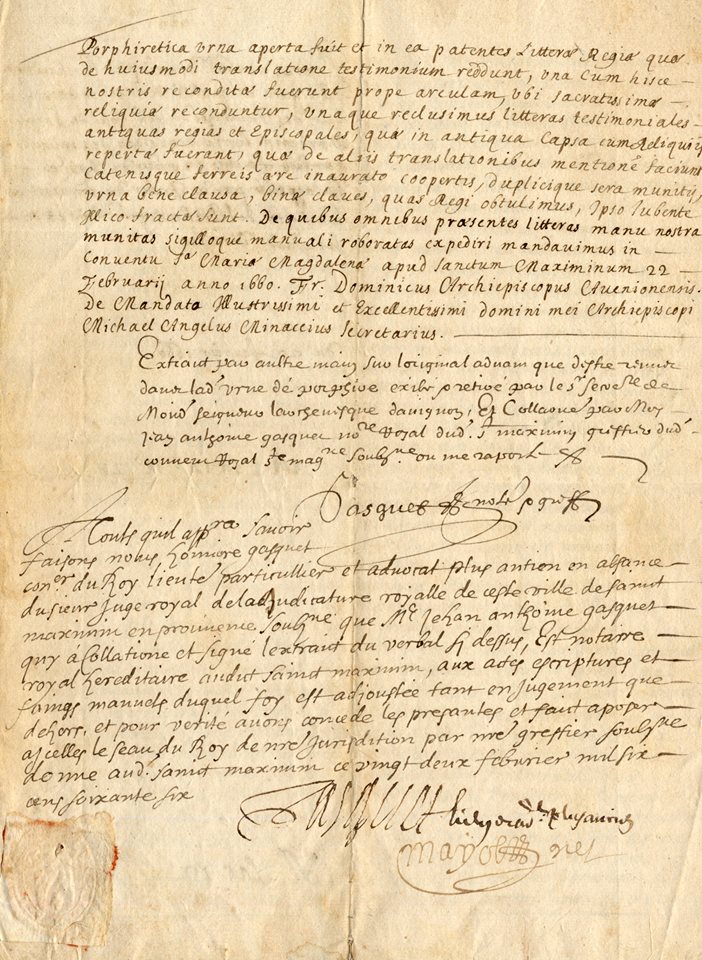 Porphiretica vrna aperta fuit et in ea patentes Litteræ Regiæ quæ
de huiusmodi translatione testimonium reddunt, vna cum hisce
nostris recondita fuerunt prope arculam, vbi sacratissimæ
reliquiæ reconduntur, vnaque reclusimus litteras testimoniales
antiquas regias et Episcopales, quæ in antiqua Capsa cum Reliquijs
repertæ fuerant, quæ de alijs translationibus mentionē faciunt
Catenisque ferreis ære inaurato coopertis, duplicique sera munitijs
vrna bene clausa, binæ claves, quas Regi obtulimus, Ipso Iubente
Illico fractæ sunt. De quibus omnibus præsentes litteras manu nostra
munitas sigilloque manuali roboratas expediri mandavimus in
Conventu Sᵃ Mariæ Magdalenæ apud sanctum Maximinum 22
Februarij anno 1660. Fr. Dominicus Archiepiscopus Avenionensis.
De Mandato Illustrissimi et Excellentissimi domini mei Archiepiscopi
Michael Angelus Minaccius secretarius.
Extraict par aultre main sur loriginal advam que destre remis
davec lad. vrne de porphire exibe par le
Moid seigneur larchevesque davignon, Et Collaoné par Moy
Jean anthoine gasquet noʳᵉ Royal dud. Sᵗ maximin greffier dud.
convent Royal Sᵗᵉ magⁿᵉ soubⁿᵉ ou me raporte
Gasquet notē greff
A touts quil appʳᵃ savoir
faisons nous honnore gasquet
conᵉʳ du Roy lieutᵉ particullier et advocat plus antien en absance
du sieur Juge royal de la Judicature royalle de ceste ville de sainct
maximin en prouvence soubⁿᵉ que Mᵉ Jehan anthoine gasquet
quy à collatione et signé lextraict du verbal sy dessus, Est notaire
royal hereditaire audict sainct maximin, aux actes escriptures et
saings manuels duquel foy est adjoustée tant en jugement que
dehors, et pour verite avons concede les presantes et faict aposer
ascelles le seau du Roy de nrē Jurisdition par nrē greffier soubsⁿᵉ
donne aud. sainct maximin ce vingt deux febvrier mil six
cens soixante six
Gasquet
Mayol